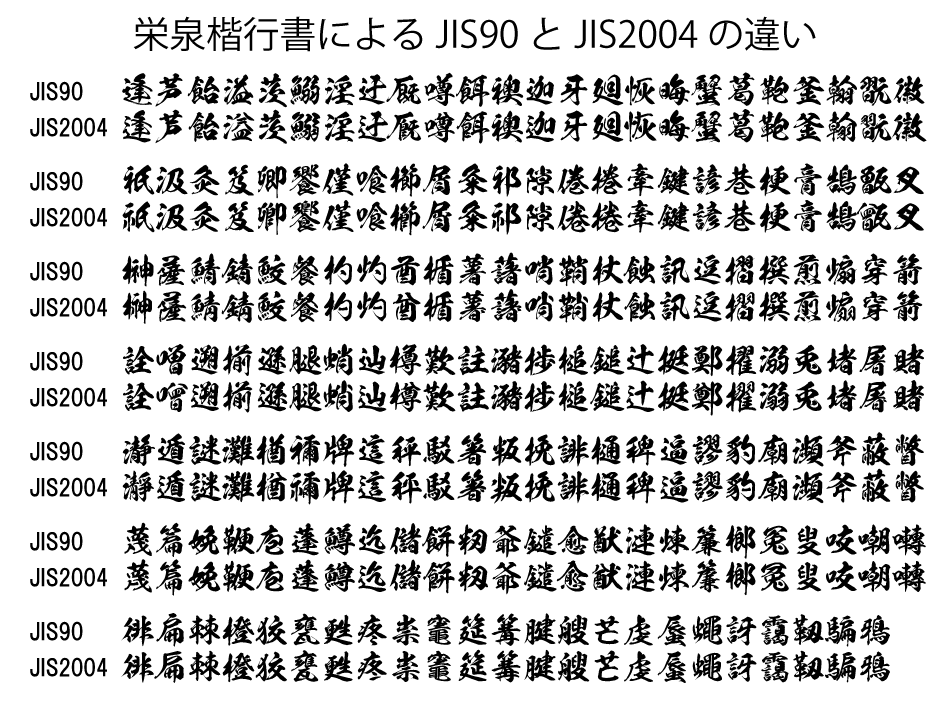 栄泉楷行書による JIS90 と JIS2004 の違い
JIS90 逢芦飴溢茨鰯淫迂厩噂餌襖迦牙廻恢晦蟹葛鞄釜翰翫徽
JIS2004 逢芦飴溢茨鰯淫迂厩噂餌襖迦牙廻恢晦蟹葛鞄釜翰翫徽
JIS90 祇汲灸笈卿饗僅喰櫛屑粂祁隙倦捲牽鍵諺巷梗膏鵠甑叉
JIS2004 祇汲灸笈卿饗僅喰櫛屑粂祁隙倦捲牽鍵諺巷梗膏鵠甑叉
JIS90 榊薩鯖錆鮫餐杓灼酋楯薯藷哨鞘杖蝕訊逗摺撰煎煽穿箭
JIS2004 榊薩鯖錆鮫餐杓灼酋楯薯藷哨鞘杖蝕訊逗摺撰煎煽穿箭
JIS90 詮噌遡揃遜腿蛸辿樽歎註瀦捗槌鎚辻挺鄭擢溺兎堵屠賭
JIS2004 詮噌遡揃遜腿蛸辿樽歎註瀦捗槌鎚辻挺鄭擢溺兎堵屠賭
JIS90 瀞遁謎灘楢禰牌這秤駁箸叛挽誹樋稗逼謬豹廟瀕斧蔽瞥
JIS2004 瀞遁謎灘楢禰牌這秤駁箸叛挽誹樋稗逼謬豹廟瀕斧蔽瞥
JIS90 蔑篇娩鞭庖蓬鱒迄儲餅籾爺鑓愈猷漣煉簾榔冤叟咬嘲囀
JIS2004 蔑篇娩鞭庖蓬鱒迄儲餅籾爺鑓愈猷漣煉簾榔冤叟咬嘲囀
JIS90 徘扁棘橙狡甕甦疼祟竈筵篝腱艘芒虔蜃蠅訝靄靱騙鴉
JIS2004 徘扁棘橙狡甕甦疼祟竈筵篝腱艘芒虔蜃蠅訝靄靱騙鴉